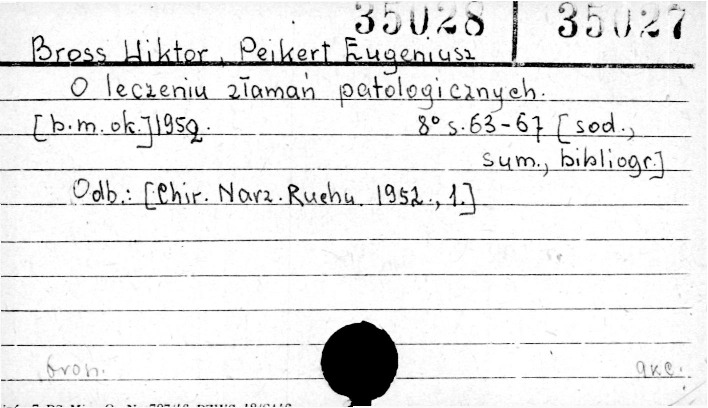 35028 | 35027
Bross Wiktor, Peikert Eugeniusz
O leczeniu złamań patologicznych.
[b.m.ok.]1952. 8° s.63-67 [sod.,
sum., bibliogr.]
Odb.: [Chir. Narz. Ruchu. 1952., 1.]
bron. akc.